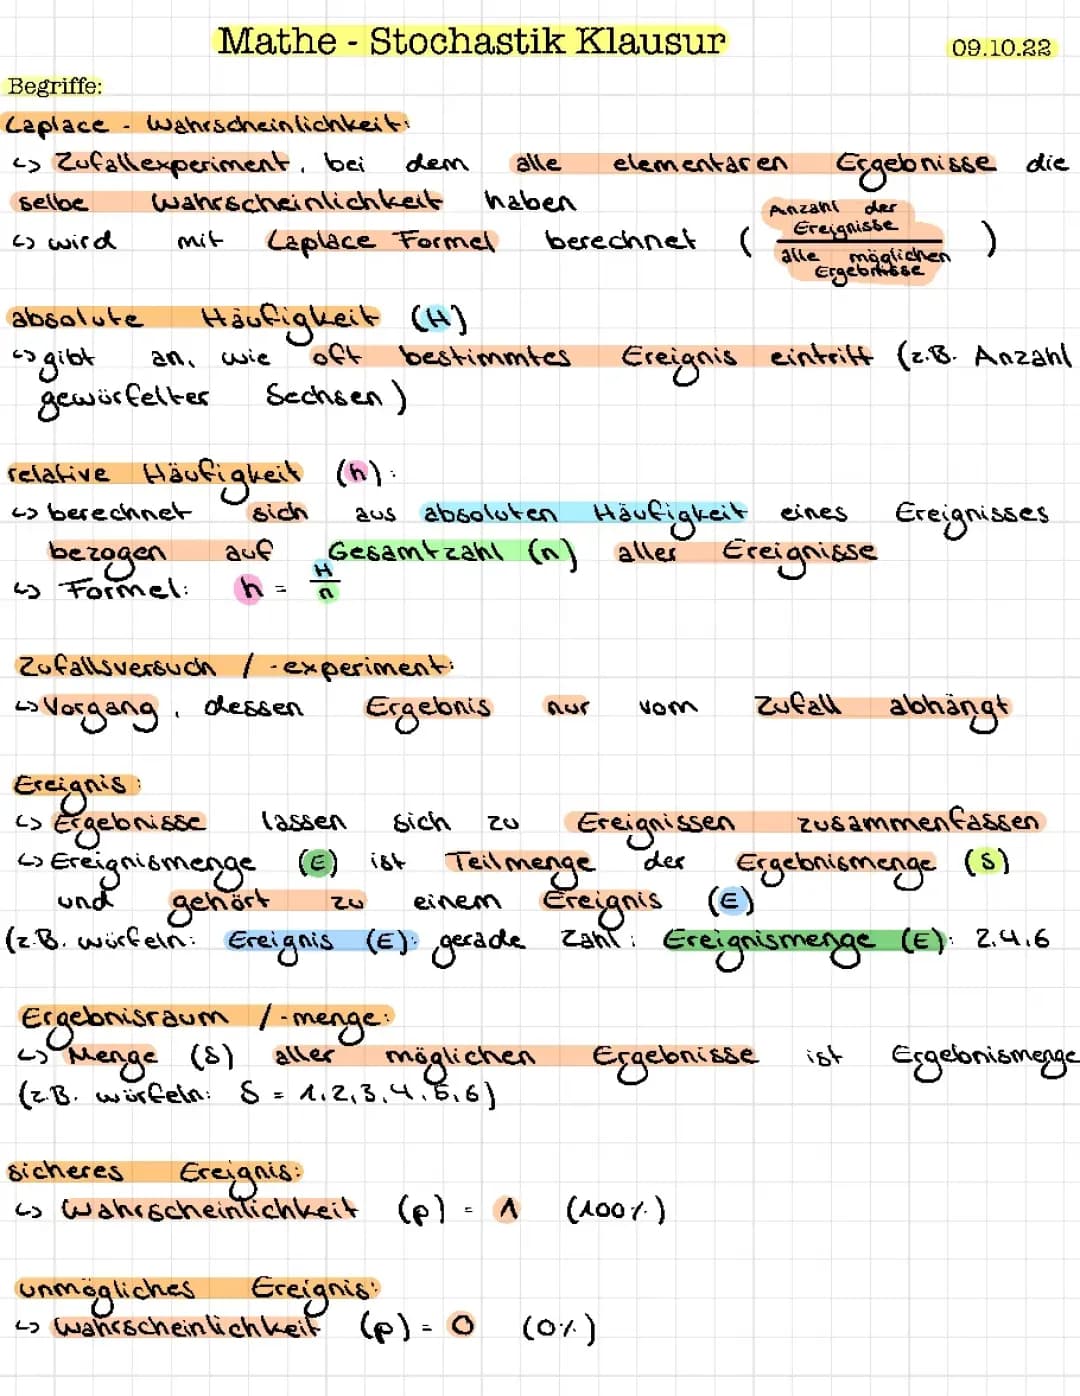 Mathe - Stochastik Klausur
09.10.22
Begriffe:
Laplace - Wahrscheinlichkeit:
↳ Zufallexperiment, bei dem alle elementaren Ergebnisse die
selbe Wahrscheinlichkeit haben
↳ wird mit Laplace Formel berechnet ( Anzahl der Ereignisse / alle möglichen Ergebnisse )
absolute Häufigkeit (H)
↳ gibt an, wie oft bestimmtes Ereignis eintriff (z.B. Anzahl
gewürfelter Sechsen)
relative Häufigkeit (h):
↳ berechnet sich aus absoluten Häufigkeit eines Ereignisses
bezogen auf Gesamtzahl (n) aller Ereignisse
↳ Formel: h = H/n
Zufallsversuch / -experiment:
↳ Vorgang, dessen Ergebnis nur vom Zufall abhängt
Ereignis:
↳ Ergebnisse lassen sich zu Ereignissen zusammenfassen
↳ Ereignismenge (E) ist Teilmenge der Ergebnismenge (S)
und gehört zu einem Ereignis (E)
(z.B. würfeln: Ereignis (E): gerade Zahl; Ereignismenge (E): 2,4,6
Ergebnisraum / -menge:
↳ Menge (S) aller möglichen Ergebnisse ist Ergebnismenge
(z.B. würfeln: S = 1,2,3,4,5,6)
sicheres Ereignis:
↳ Wahrscheinlichkeit (p) = 1 (100%)
unmögliches Ereignis:
↳ Wahrscheinlichkeit (p) = 0 (0%)